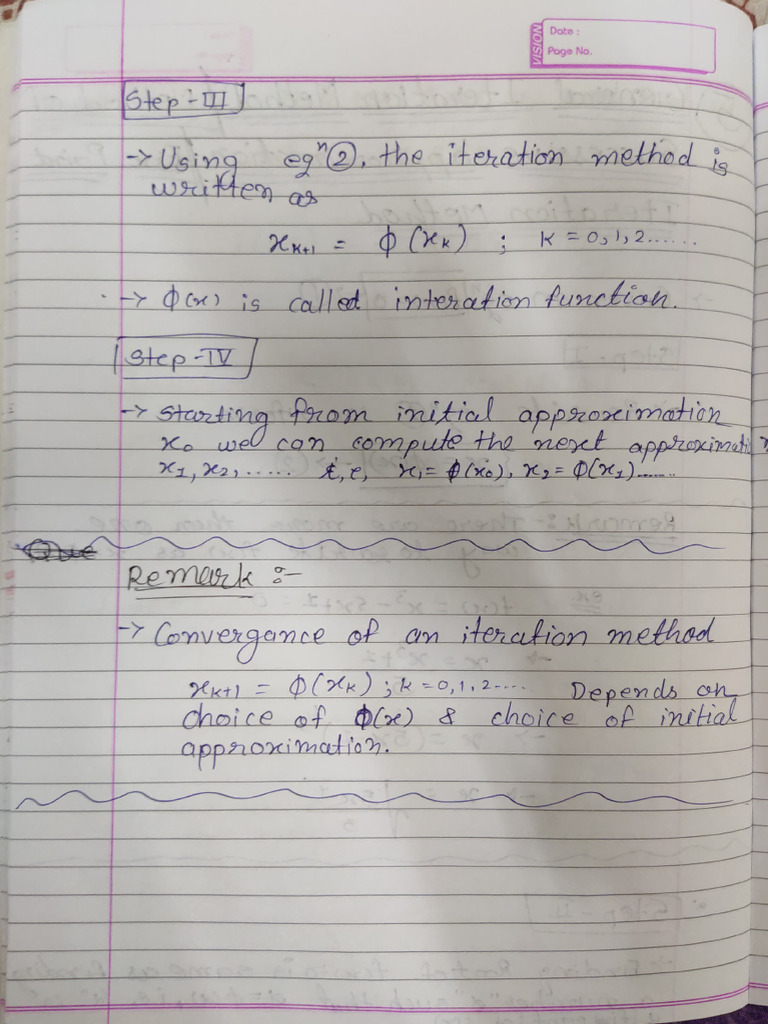 VISION
Date :
Page No.
Step-III
-> Using eqⁿ②, the iteration method is
written as
xₖ₊₁ = ϕ(xₖ) ; K = 0,1,2......
-> ϕ(x) is called interation function.
Step-IV
-> Starting from initial approximation
x₀ we can compute the next approximation
x₁, x₂, ..... i,e, x₁= ϕ(x₀), x₂= ϕ(x₁)......
Remark :-
-> Convergance of an iteration method
xₖ₊₁ = ϕ(xₖ) ; K = 0,1,2.... Depends on
choice of ϕ(x) & choice of initial
approximation.